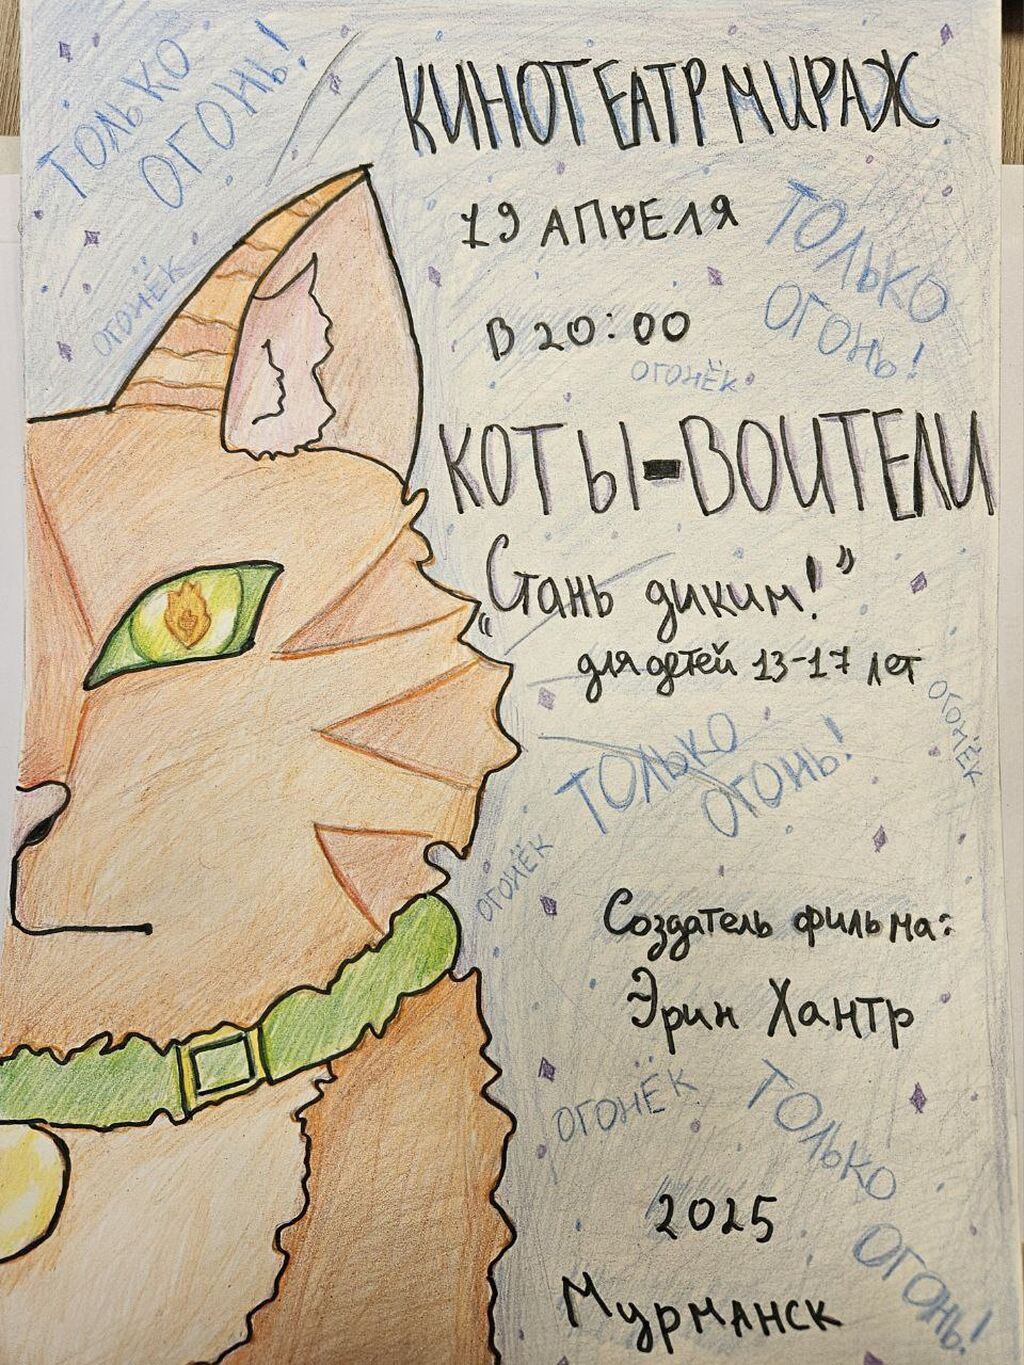 ТОЛЬКО
ОГОНЬ!
КИНОТЕАТР МИРАЖ
19 АПРЕЛЯ
ТОЛЬКО
ОГОНЬ!
ОГОНЁК
В 20:00
ОГОНЁК
КОТЫ-ВОИТЕЛИ
„Стань диким!”
для детей 13-17 лет
ОГОНЁК
ТОЛЬКО
ОГОНЬ!
ОГОНЁК
Создатель фильма:
Эрин Хантр
ОГОНЁК
ТОЛЬКО
ОГОНЬ!
2025
Мурманск